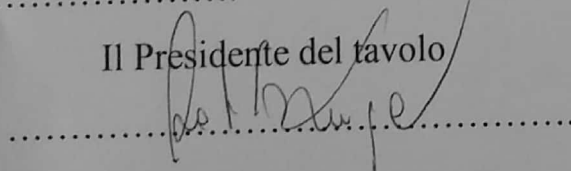 Il Presidente del tavolo